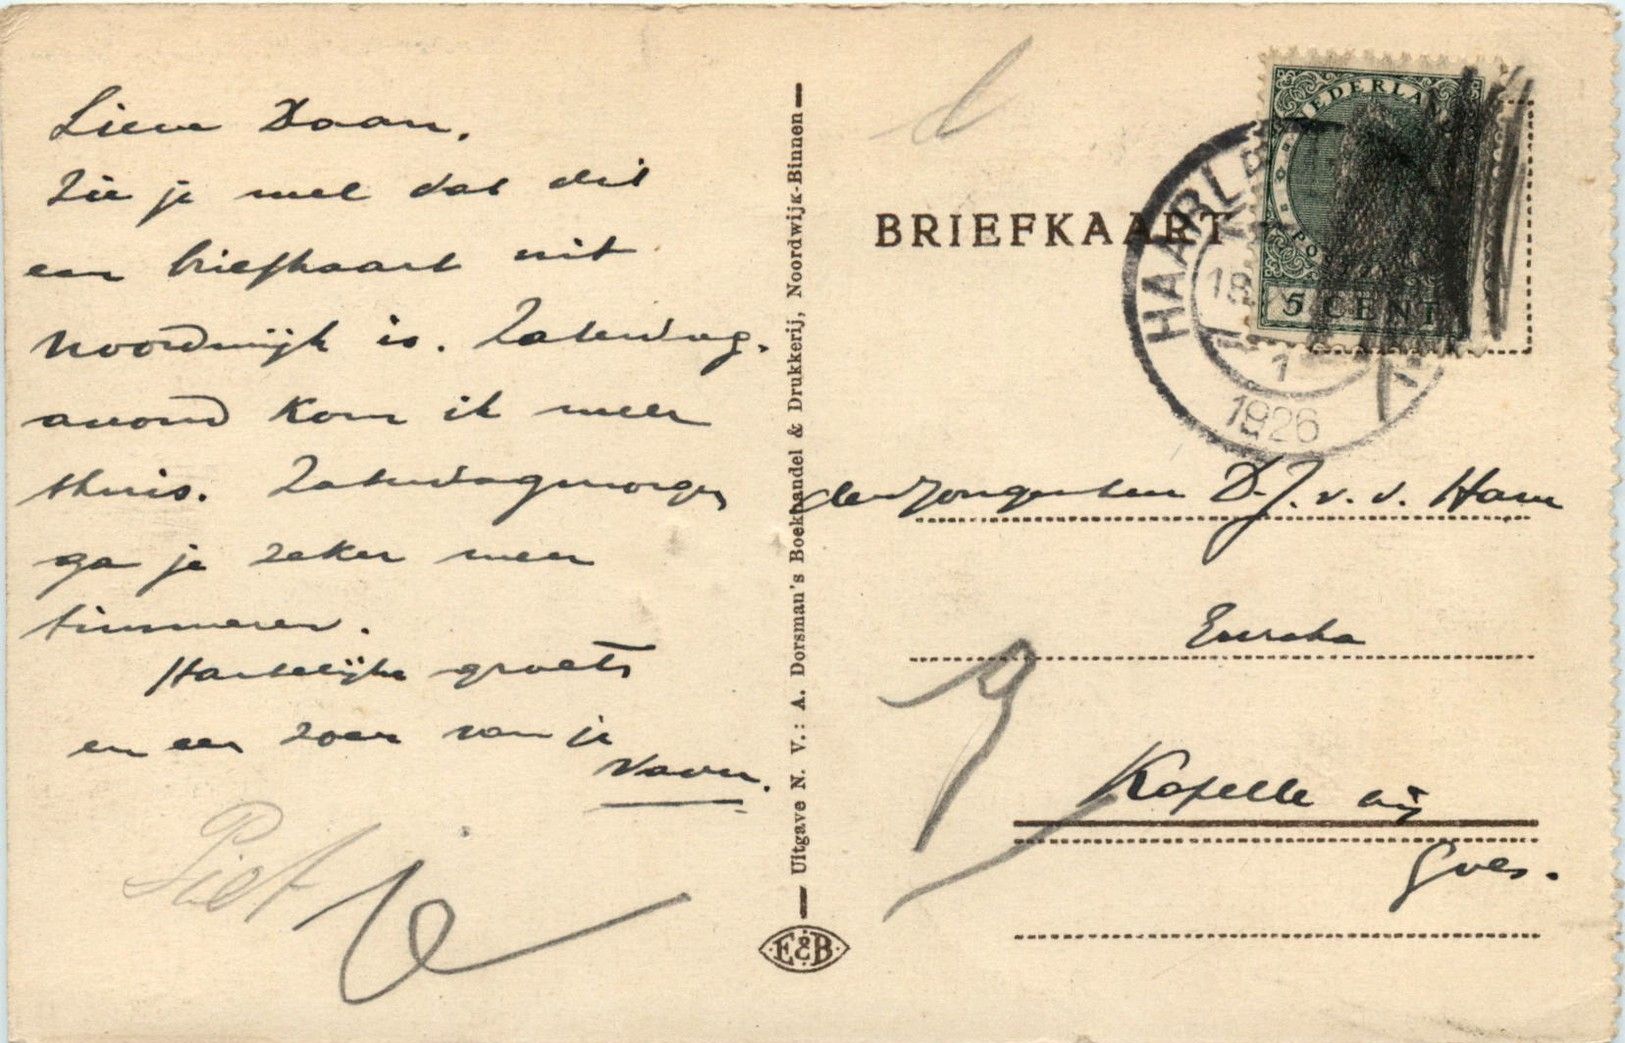 Lieve Daan,
Zie je wel dat dit
een briefkaart uit
Noordwijk is. Zaterdag-
avond kom ik weer
thuis. Zaterdagmorgen
ga je zeker weer
timmeren.
Hartelijke groets
en een zoen van je
Vader.
Piet
Uitgave N. V.: A. Dorsman's Boekhandel & Drukkerij, Noordwijk-Binnen
E&B
BRIEFKAART
NEDERLAND
POSTZEGEL
5 CENT
HAARLEM
18
1
1926
den Jongenheer D. J. v. d. Ham
Eureka
Kapelle bij
Goes.